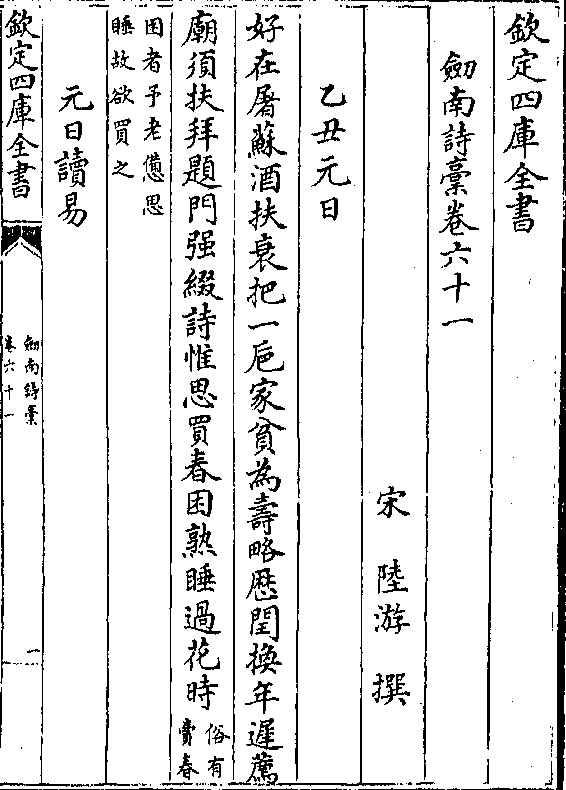 欽定四庫全書
劒南詩稾卷六十一
宋 陸游 撰
乙丑元日
好在屠蘇酒扶衰把一巵家貧為壽略厯閏換年遲薦
廟須扶拜題門强綴詩惟思買春困熟睡過花時俗有
賣春
困者予老憊思
睡故欲買之
元日讀易
欽定四庫全書
劒南詩稾
卷六十一
一